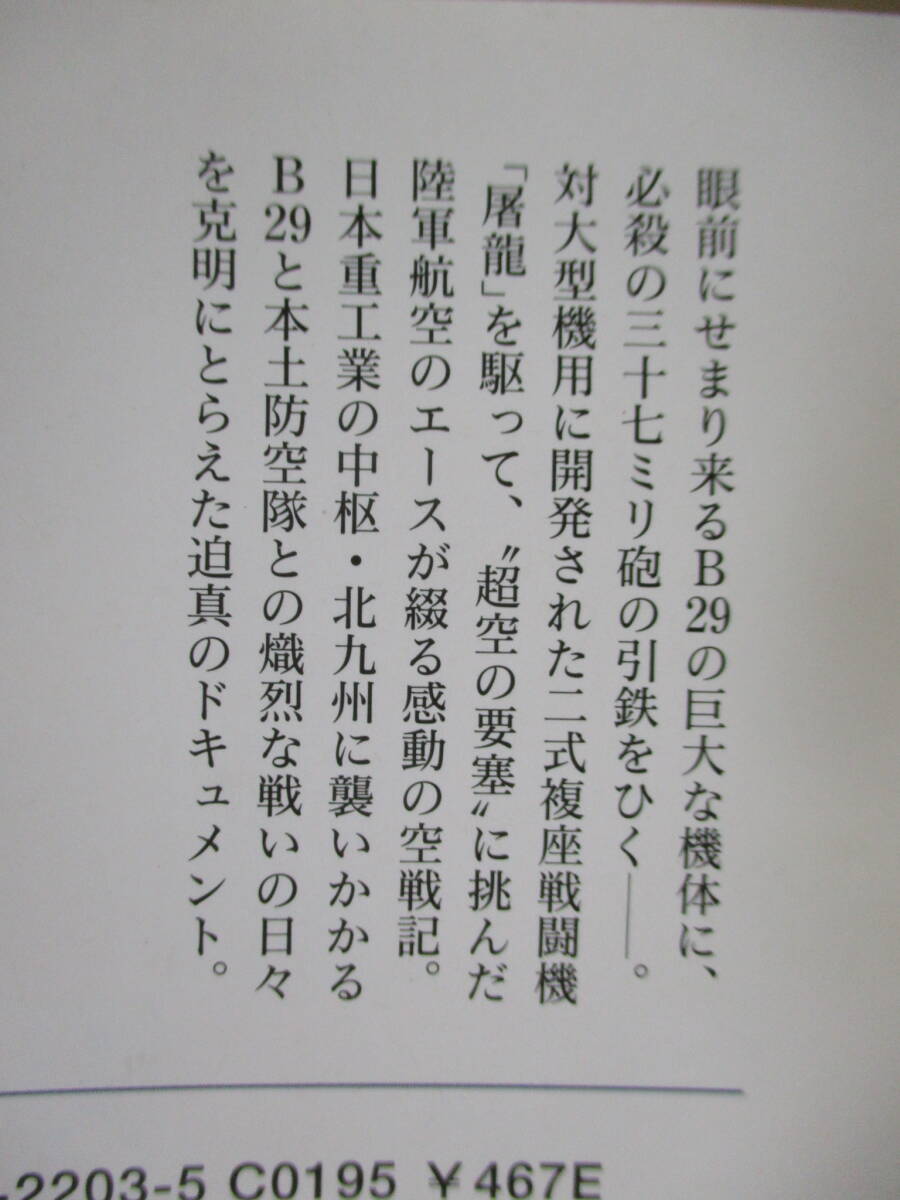 眼前にせまり来るB29の巨大な機体に、
必殺の三十七ミリ砲の引鉄をひく——。
対大型機用に開発された二式複座戦闘機
「屠龍」を駆って、〝超空の要塞〟に挑んだ
陸軍航空のエースが綴る感動の空戦記。
日本重工業の中枢・北九州に襲いかかる
B29と本土防空隊との熾烈な戦いの日々
を克明にとらえた迫真のドキュメント。
-2203-5 C0195 ¥467E